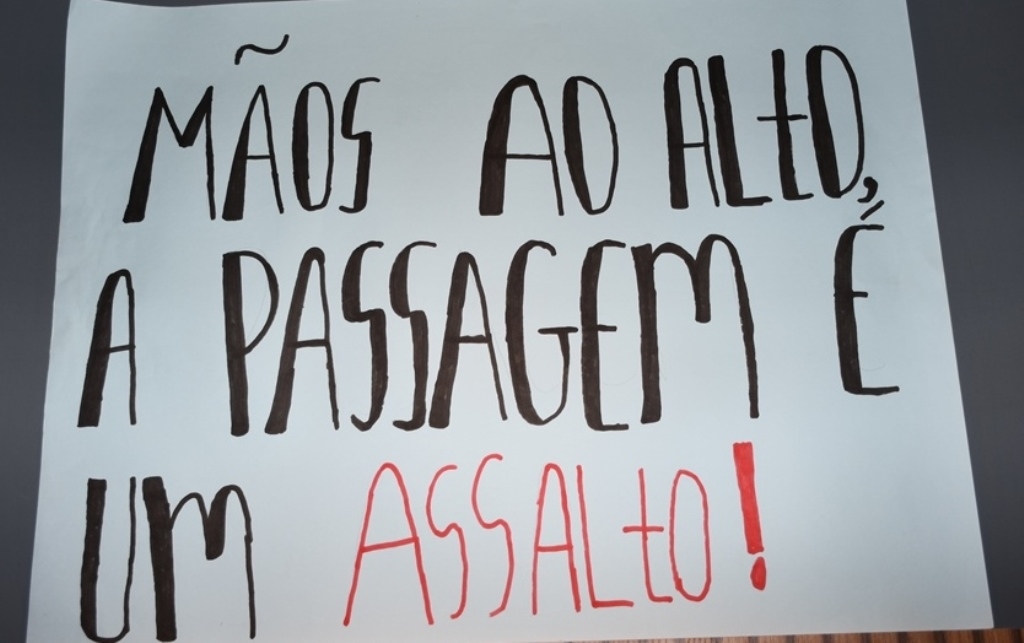 MÃOS AO ALTO,
A PASSAGEM É
UM ASSALTO!